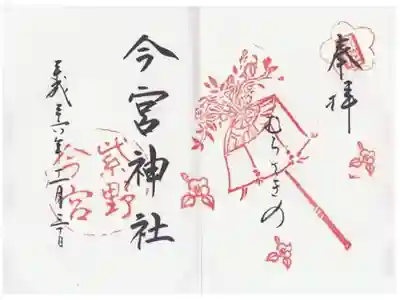 奉拝
むらさきの
今宮神社
紫野
今宮
平成
年十一月